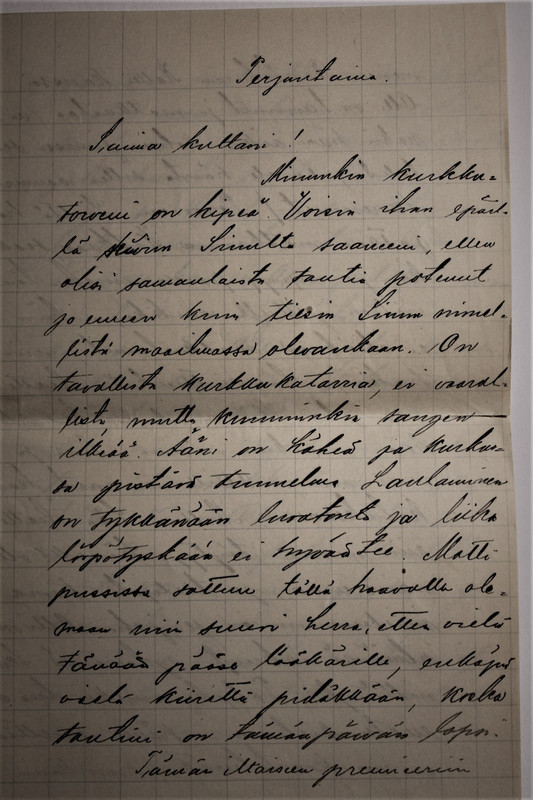 Perjantaina.
Saima kultani!
Minunkin kurkku-
torveni on kipeä. Voisin ihan epäil-
lä Sinulta saaneeni, ellen
olisi samanlaista tautia potenut
jo ennen kuin tiesin Sinun nimel-
listä maailmassa olevankaan. On
tavallista kurkkukatarria, ei vaaral-
lista mutta kumminkin sangen
ilkeää. Ääni on käheä ja kurkus-
sa pistävä tunnelma. Laulaminen
on tykkänään luvatonta ja liika
löpötyskään ei hyvää tee. Matti
pussissa sattuu tällä haavalla ole-
maan niin suuri herra, etten vielä
tänään pääse lääkärille, enkäpä
vielä kiirettä pidäkkään, koska
tautini on tämänpäivän lapsi.
Tämän iltaiseen premieeriin